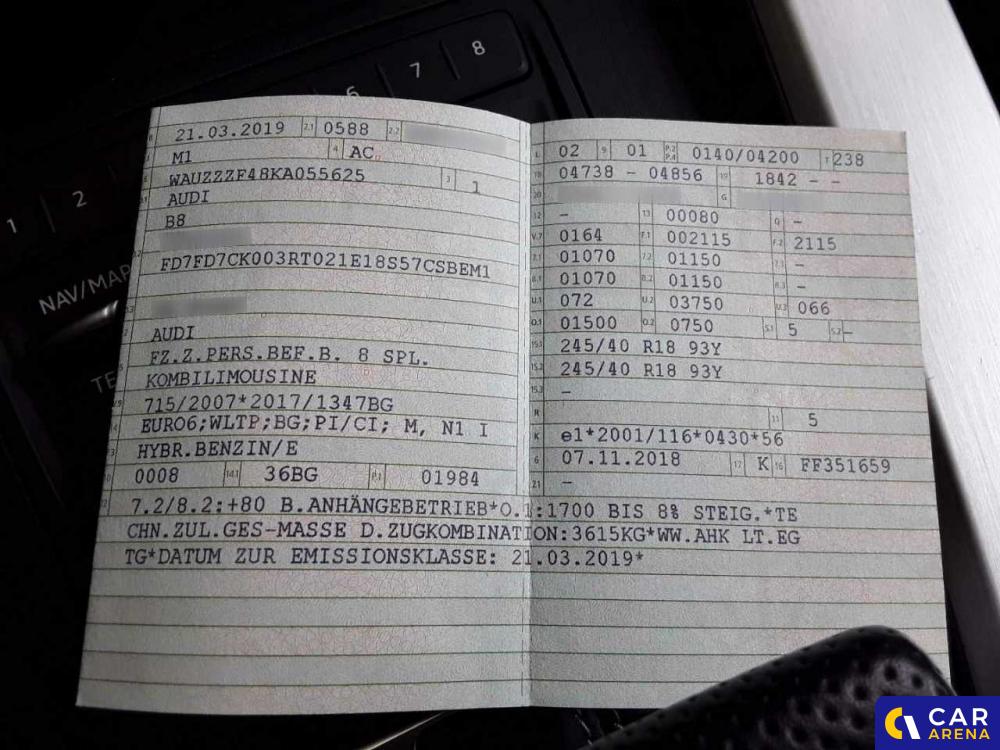 8
7
6
2
1
NAV/MAP
TE
21.03.2019 2.1 0588 2.2
M1 4 AC
WAUZZZF48KA055625 3 1
AUDI
B8
FD7FD7CK003RT021E18S57CSBEM1
AUDI
FZ.Z.PERS.BEF.B. 8 SPL.
KOMBILIMOUSINE
715/2007*2017/1347BG
EURO6;WLTP;BG;PI/CI; M, N1 I
HYBR.BENZIN/E
0008 14.1 36BG P.1 01984
L 02 9 01 P.2 P.4 0140/04200 T 238
18 04738 - 04856 19 1842 - -
20 G
12 - 13 00080 Q -
V.7 0164 F.1 002115 F.2 2115
7.1 01070 7.2 01150 7.3 -
8.1 01070 8.2 01150 8.3 -
U.1 072 U.2 03750 U.3 066
O.1 01500 O.2 0750 S.1 5 S.2 -
15.1 245/40 R18 93Y
15.2 245/40 R18 93Y
15.3 -
R 11 5
K e1*2001/116*0430*56
6 07.11.2018 17 K 16 FF351659
21 -
7.2/8.2:+80 B.ANHÄNGEBETRIEB*O.1:1700 BIS 8% STEIG.*TE
CHN.ZUL.GES-MASSE D.ZUGKOMBINATION:3615KG*WW.AHK LT.EG
TG*DATUM ZUR EMISSIONSKLASSE: 21.03.2019*
CAR
ARENA